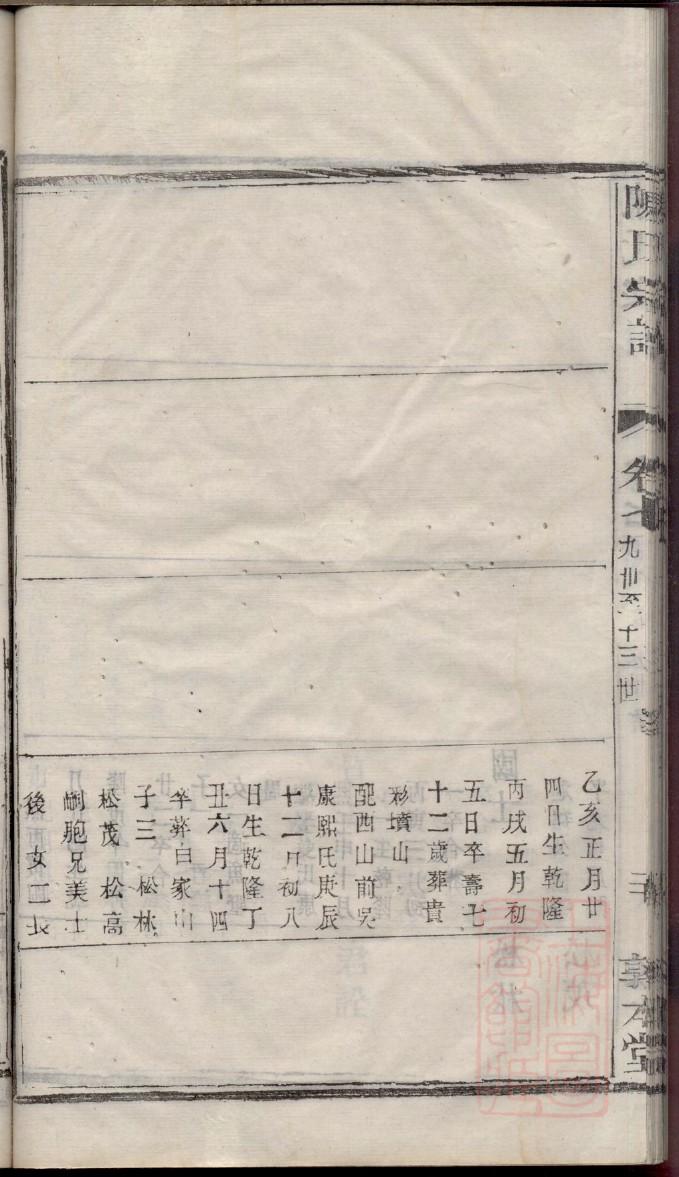 陳氏宗譜
卷七
九世至十三世
敦本堂
乙亥正月廿
四日生乾隆
丙戌五月初
五日卒壽七
十二歲葬貴
彩墳山
配西山前吳
康熙氏庚辰
十二月初八
日生乾隆丁
丑六月十四
卒葬白家山
子三 松林
松茂 松高
嗣胞兄美士
後 女二長